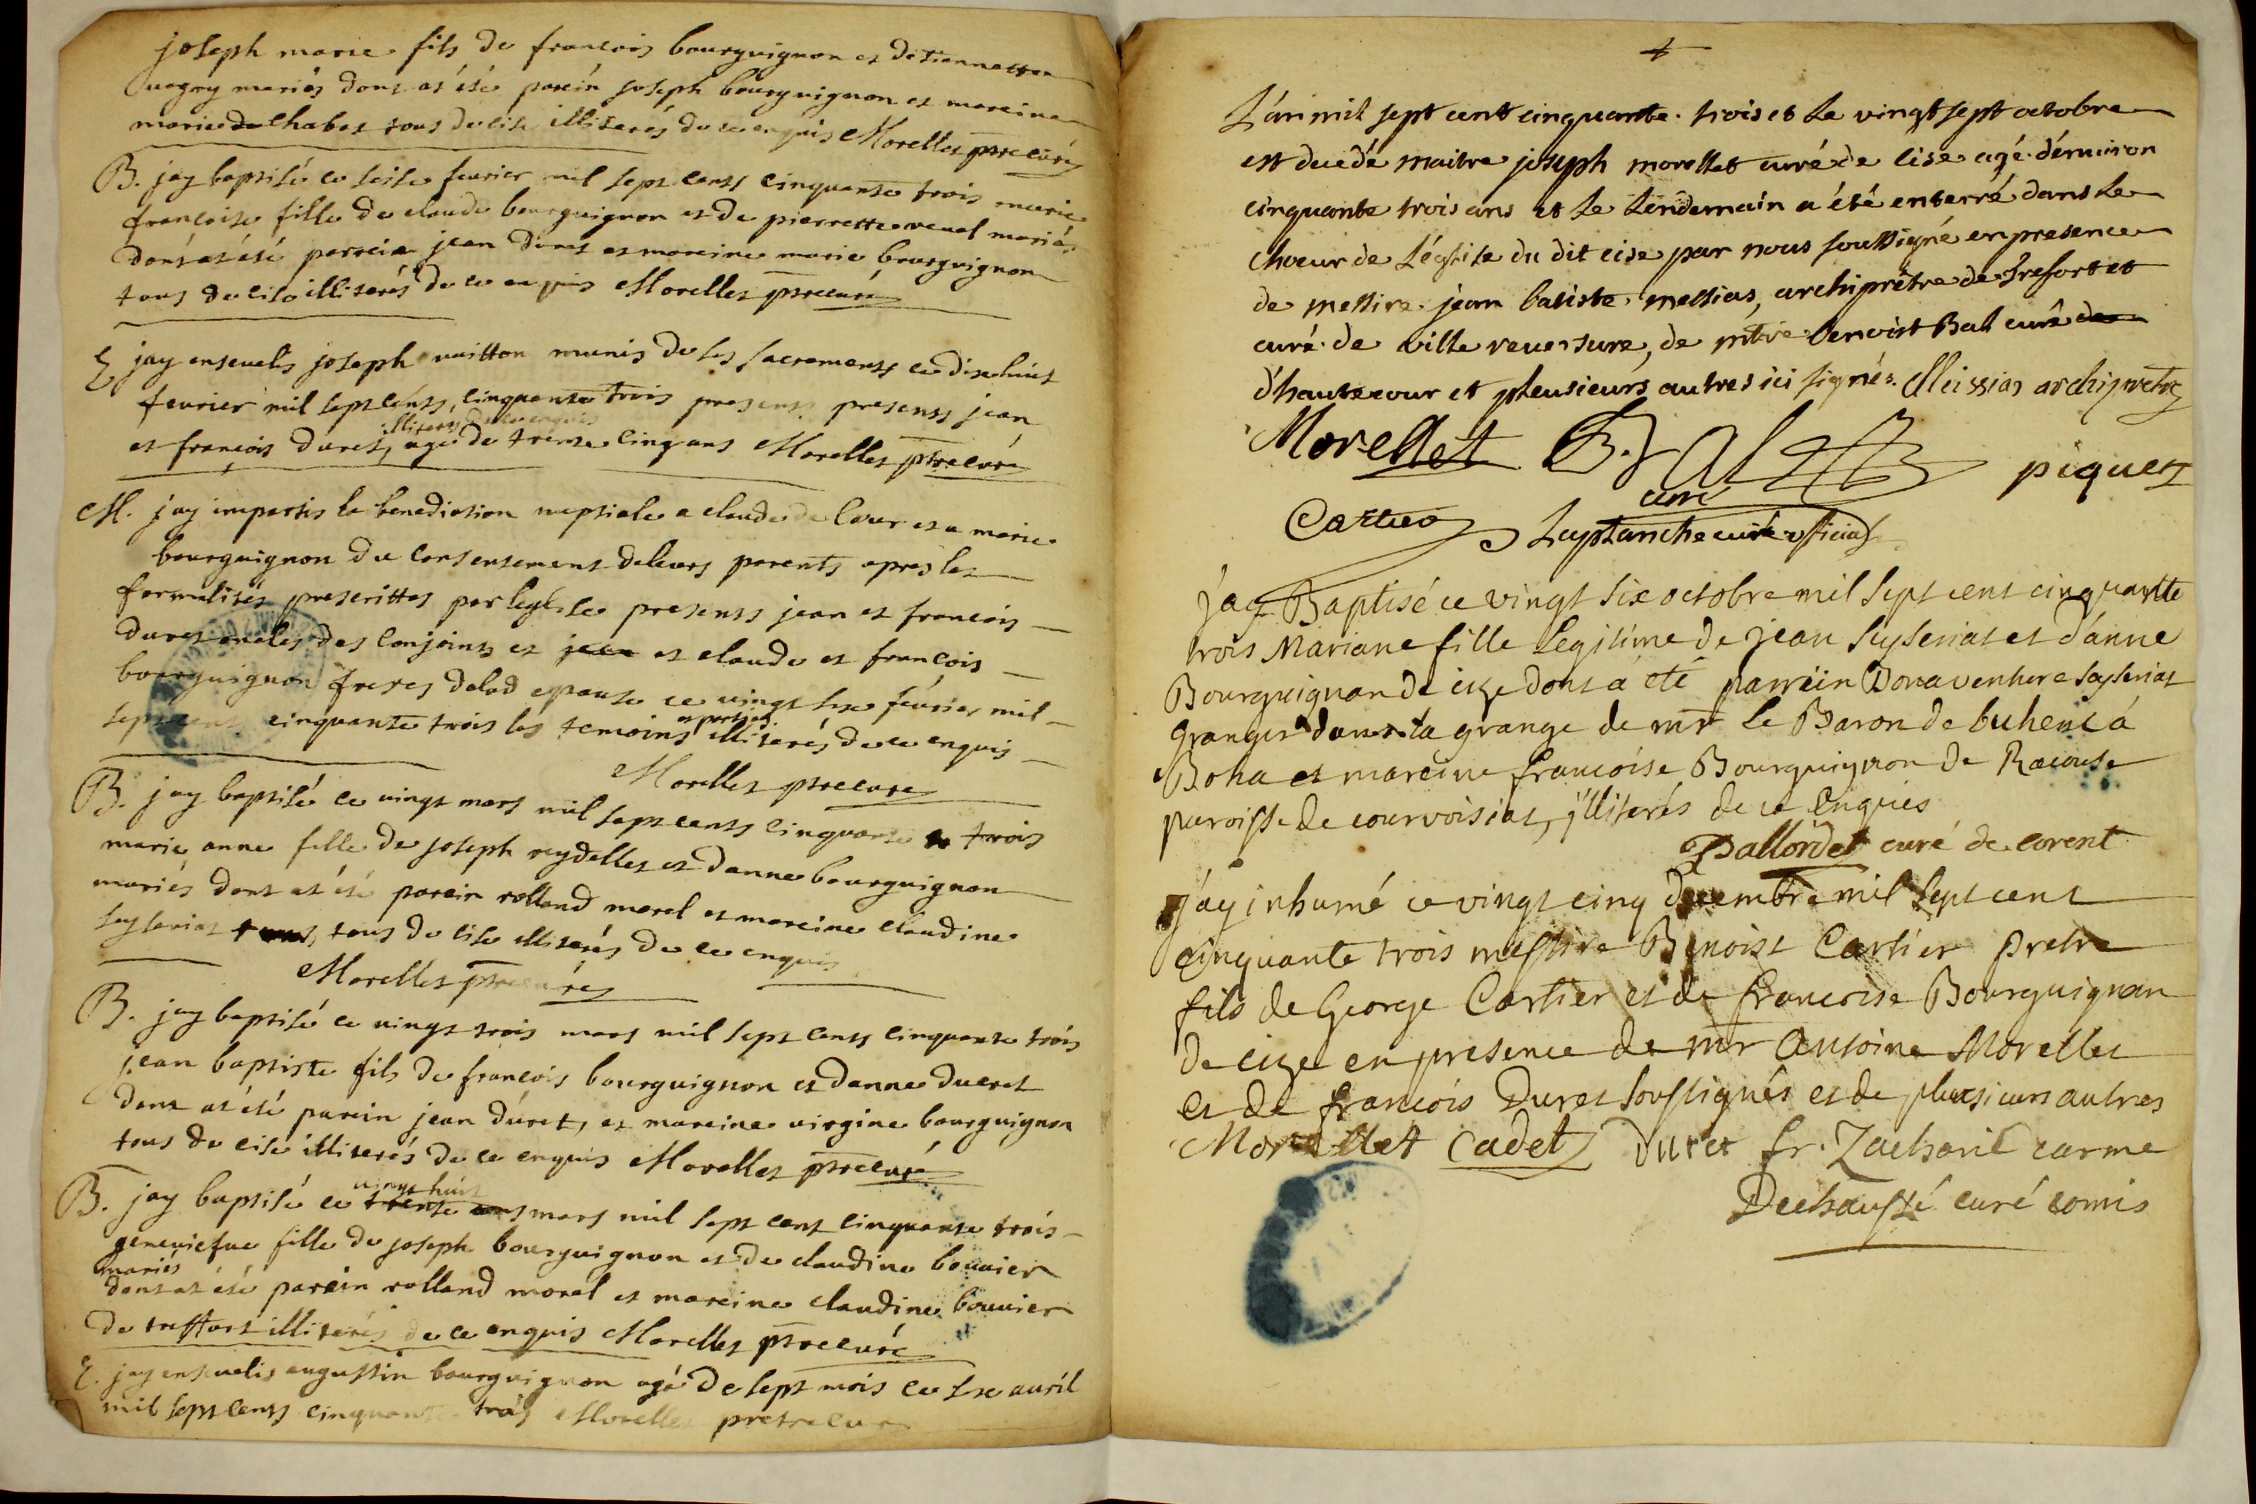 joseph marie fils de francois bourguignon et detiennette
uogny mariés dont at été parein joseph bourguignon et mareine
marie chabet tous de cise illiterés de ce enquis Morellet ptre curé
B. jay baptisé ce seise feurier mil sept cents cinquante trois marie
francoise fille de claude bourguignon et de pierrette reuel mariés
dont at été parrein jean duret et mareine marie bourguignon
tous de cise illiterés de ce enquis Morellet ptre curé
E jay enseuelis joseph uuitton munis de ses sacrements ce dixhuit
feurier mil sept cents, cinquante trois presents presents jean
illiterés de ce enquis
et françois duret, age de trente cinq ans Morellet ptre curé
M. jay impartis la benediction nuptiale a claude de lour et a marie
bourguignon du consentement de leurs parents apres les
formalités prescrittes par leglise presents jean et francois
duret oncles des conjoints et jean et claude et françois
bourguignon freres delad epouse ce vingt six féurier mil
sept cent cinquante trois les temoins et parties illiterés de ce enquis
Morellet ptre curé
B. jay baptisé ce vingt mars mil sept cents cinquante trois
marie anne fille de joseph reydellet et danne bourguignon
mariés dont at été parein rolland morel et mareine claudine
seyseriat tous de cise illiterés de ce enquis
Morellet ptre curé
B. jay baptisé ce vingt trois mars mil sept cents cinquante trois
jean baptiste fils de françois bourguignon et danne ducret
dont at été parein jean duret, et mareine virgine bourguignon
tous de cise illiterés de ce enquis Morellet ptre curé
vingt huit
B. jay baptisé ce trente mars mil sept cent cinquante trois
geneuiefue fille de joseph bourguignon et de claudine bouuier
mariés
dont at été parein rolland morel et mareine claudine bouuier
de treffort illiterés de ce enquis Morellet ptre curé
E. jay enseuelis augustin bourguignon agé de sept mois ce six auril
mil sept cents cinquante trois Morellet pretre curé
L'an mil sept cent cinquante trois et le vingt sept octobre
est decedé maitre joseph morellet curé de cise agé d'environ
cinquante trois ans et le lendemain a été enterré dans le
choeur de l'église du dit cise par nous soussigné en presence
de messire jean batiste messias, archiprêtre de Trefort et
curé de ville reuersure, de mtre benoist Bal curé de
d'hautecour et pleusieurs autres ici signés. Meissias archiprêtre
Morellet B. Bal piquet
curé
Cartier Laplanche curé official
jay Baptisé ce vingt six octobre mil sept cent cinquante
trois Mariane fille legitime de jean seyseriat et d'anne
Bourguignon de cize dont a été parrein Bonaventure seyseriat
granger dans la grange de mr le Baron de buhenc à
Boha et mareine francoise Bourguignon de Racouse
paroisse de courvoisiat, jlliterés de ce enquis
Ballordet curé de corent
J'ay inhumé ce vingt cinq decembre mil sept cent
cinquante trois messire Benoist Cartier pretre
fils de George Cartier et de francoise Bourguignon
de cize en presence de mr Antoine Morellet
et de francois Duret soussignés et de plusieurs autres
Morellet Cadet Duret fr. Zacharie carme
Dechaussé curé comis